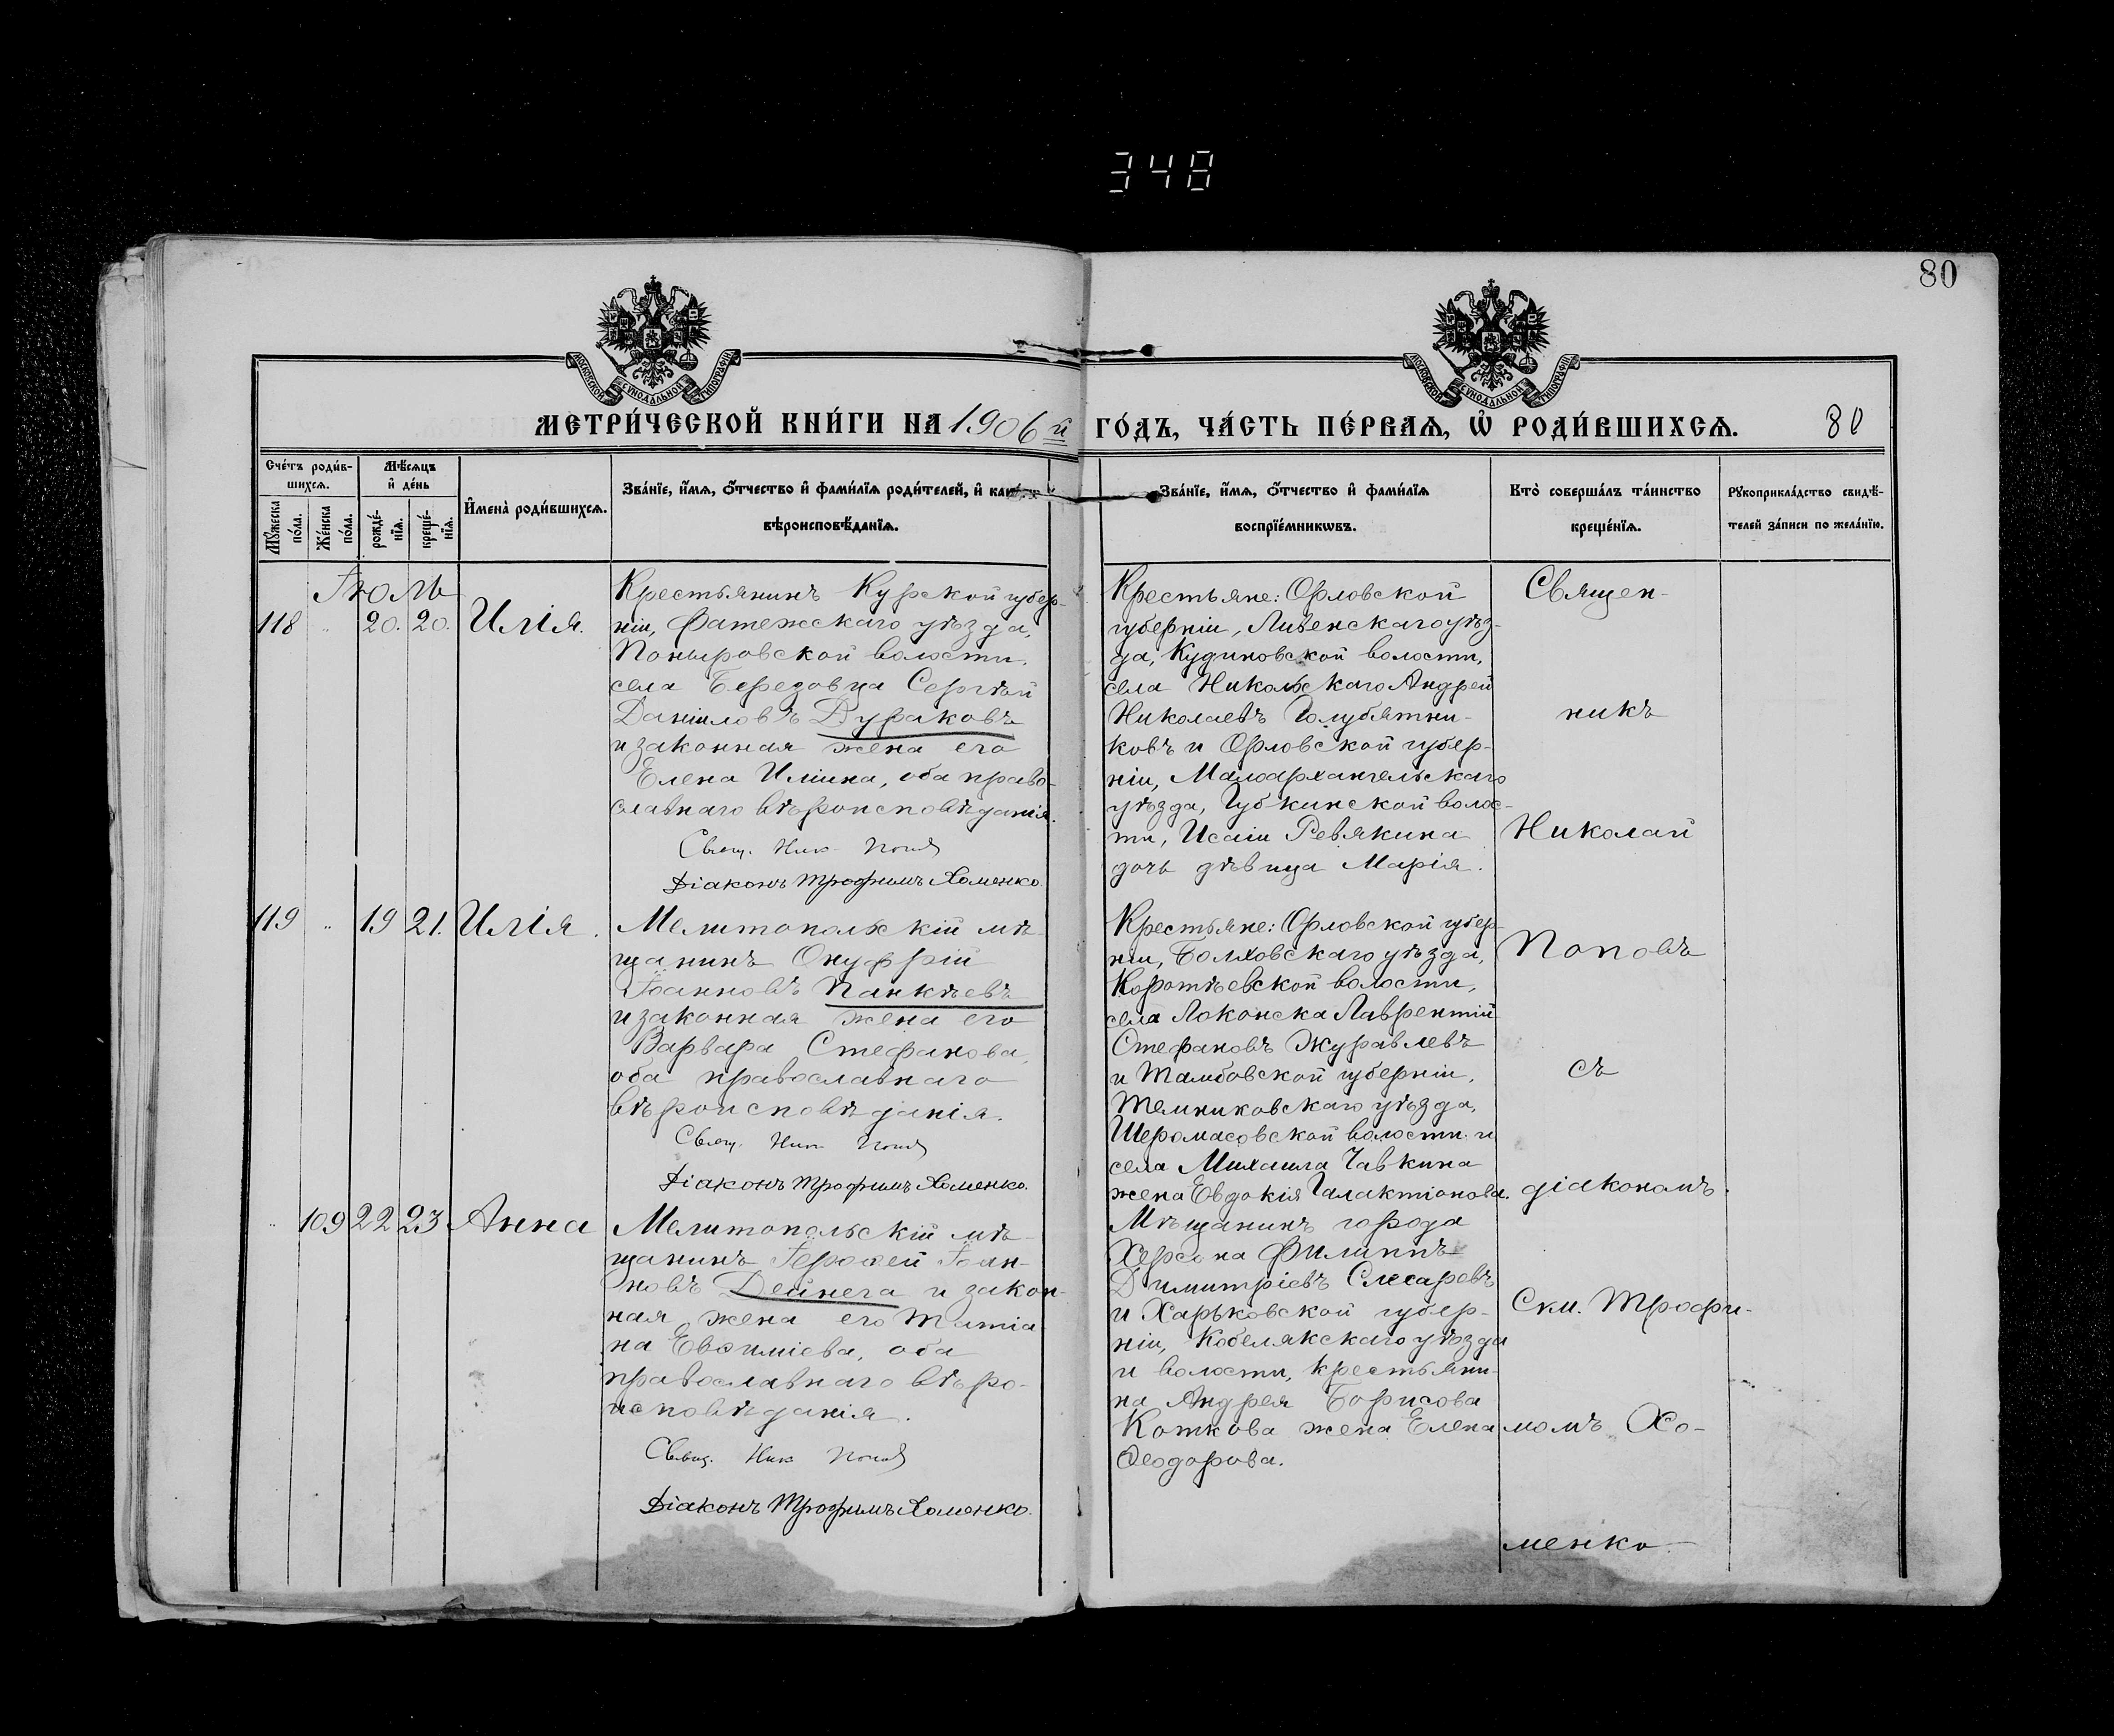 348
80
МОСКОВСКОЙ СѴНОДАЛЬНОЙ ТИПОГРАФІИ
МОСКОВСКОЙ СѴНОДАЛЬНОЙ ТИПОГРАФІИ
МЕТРИ́ЧЕСКОЙ КНИ́ГИ НА 1906 й
ГО́ДЪ, ЧА́СТЬ ПЕ́РВАѦ, Ѽ РОДИ́ВШИХСѦ.
80
Сче́тъ роди́в-
шихсѧ.
Мѣ́сѧцъ
и҆ де́нь
Мꙋ́жеска
по́ла.
Же́нска
по́ла.
рожде́-
нїѧ.
креще́-
нїѧ.
И҆мена̀ роди́вшихсѧ.
Зва́нїе, и҆́мѧ, ѻ҆́тчество и҆ фами́лїѧ роди́телей, и҆ како́гѡ
вѣроисповѣ́данїѧ.
Зва́нїе, и҆́мѧ, ѻ҆́тчество и҆ фами́лїѧ
воспрїе́мникѡвъ.
Кто̀ соверша́лъ та́инство
креще́нїѧ.
Рꙋкоприкла́дство свидѣ́-
телей за́писи по жела́нїю.
Іюль
118 " 20. 20. Илія.
Крестьянинъ Курской губер-
ніи, Фатежскаго уѣзда,
Поныровской волости,
села Березовца Сергѣй
Даніиловъ Дураковъ
и законная жена его
Елена Иліина, оба право-
славнаго вѣроисповѣданія.
Свящ. Ник. Поповъ
Діаконъ Трофимъ Хоменко.
Крестьяне: Орловской
губерніи, Ливенскаго уѣз-
да, Кудиновской волости,
села Никольскаго Андрей
Николаевъ Голубятни-
ковъ и Орловской губер-
ніи, Малоархангельскаго
уѣзда, Губкинской волос-
ти, Исаіи Ревякина
дочь дѣвица Марія.
Священ-
никъ
Николай
119 " 19 21. Илія.
Мелитопольскій мѣ-
щанинъ Онуфрій
Іоанновъ Панкѣевъ
и законная жена его
Варвара Стефанова,
оба православнаго
вѣроисповѣданія.
Свящ. Ник. Поповъ
Діаконъ Трофимъ Хоменко.
Крестьяне: Орловской губер-
ніи, Болховскаго уѣзда,
Коротѣевской волости,
села Локонска Лаврентій
Стефановъ Журавлевъ
и Тамбовской губерніи,
Темниковскаго уѣзда,
Шеромасовской волости и
села Михаила Чавкина
жена Евдокія Галактіонова.
Поповъ
съ
діакономъ
" 109 22 23 Анна
Мелитопольскій мѣ-
щанинъ Іерофей Іоан-
новъ Дейнега и закон-
ная жена его Татіа-
на Евѳиміева, оба
православнаго вѣро-
исповѣданія.
Свящ. Ник. Поповъ
Діаконъ Трофимъ Хоменко.
Мѣщанинъ города
Херсона Филиппъ
Димитріевъ Слесаревъ
и Харьковской губер-
ніи, Кобелякскаго уѣзда
и волости, крестьяни-
на Андрея Борисова
Коткова жена Елена
Ѳеодорова.
Трофи-
момъ Хо-
менко